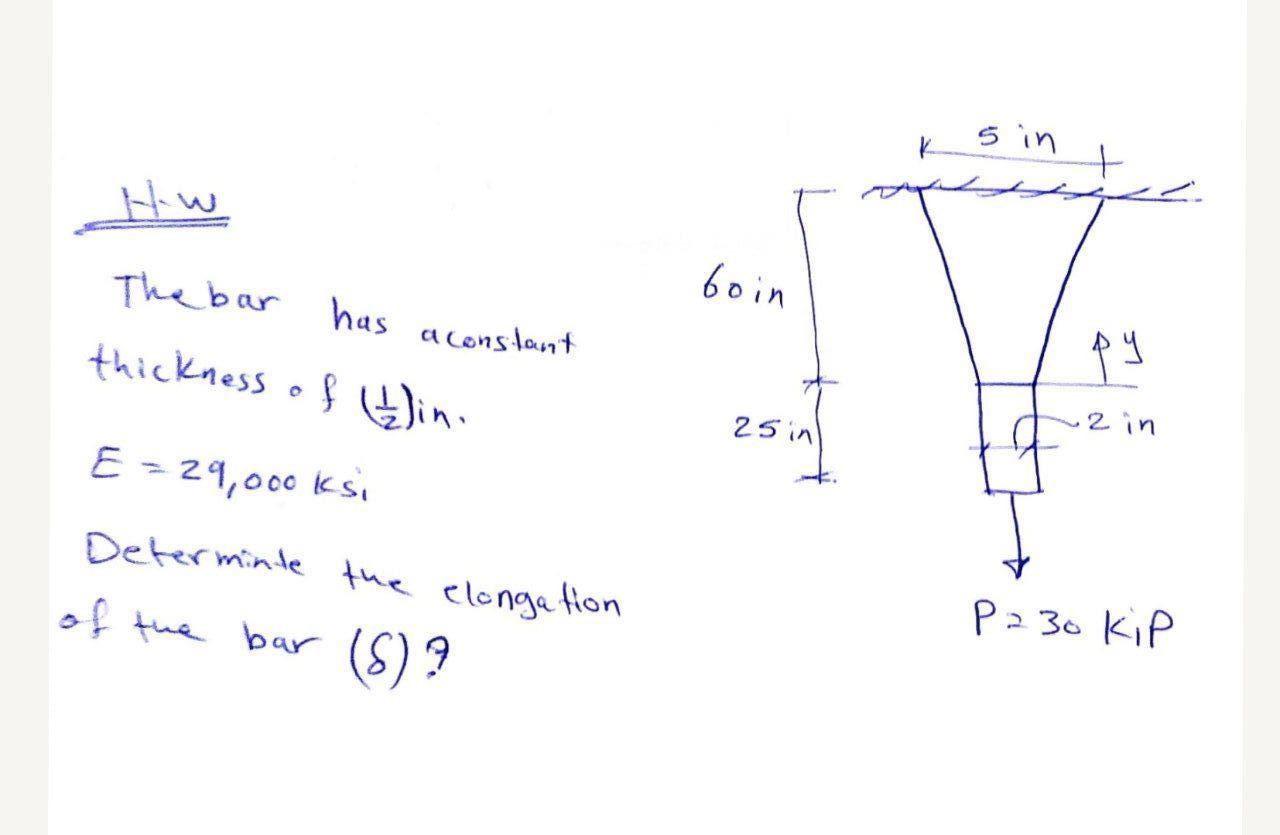 H.w
The bar has a constant
thickness of (1/2) in.
E = 29,000 ksi
Determinte the elongation
of the bar (δ)?
5 in
60 in
y
25 in
2 in
P = 30 KiP